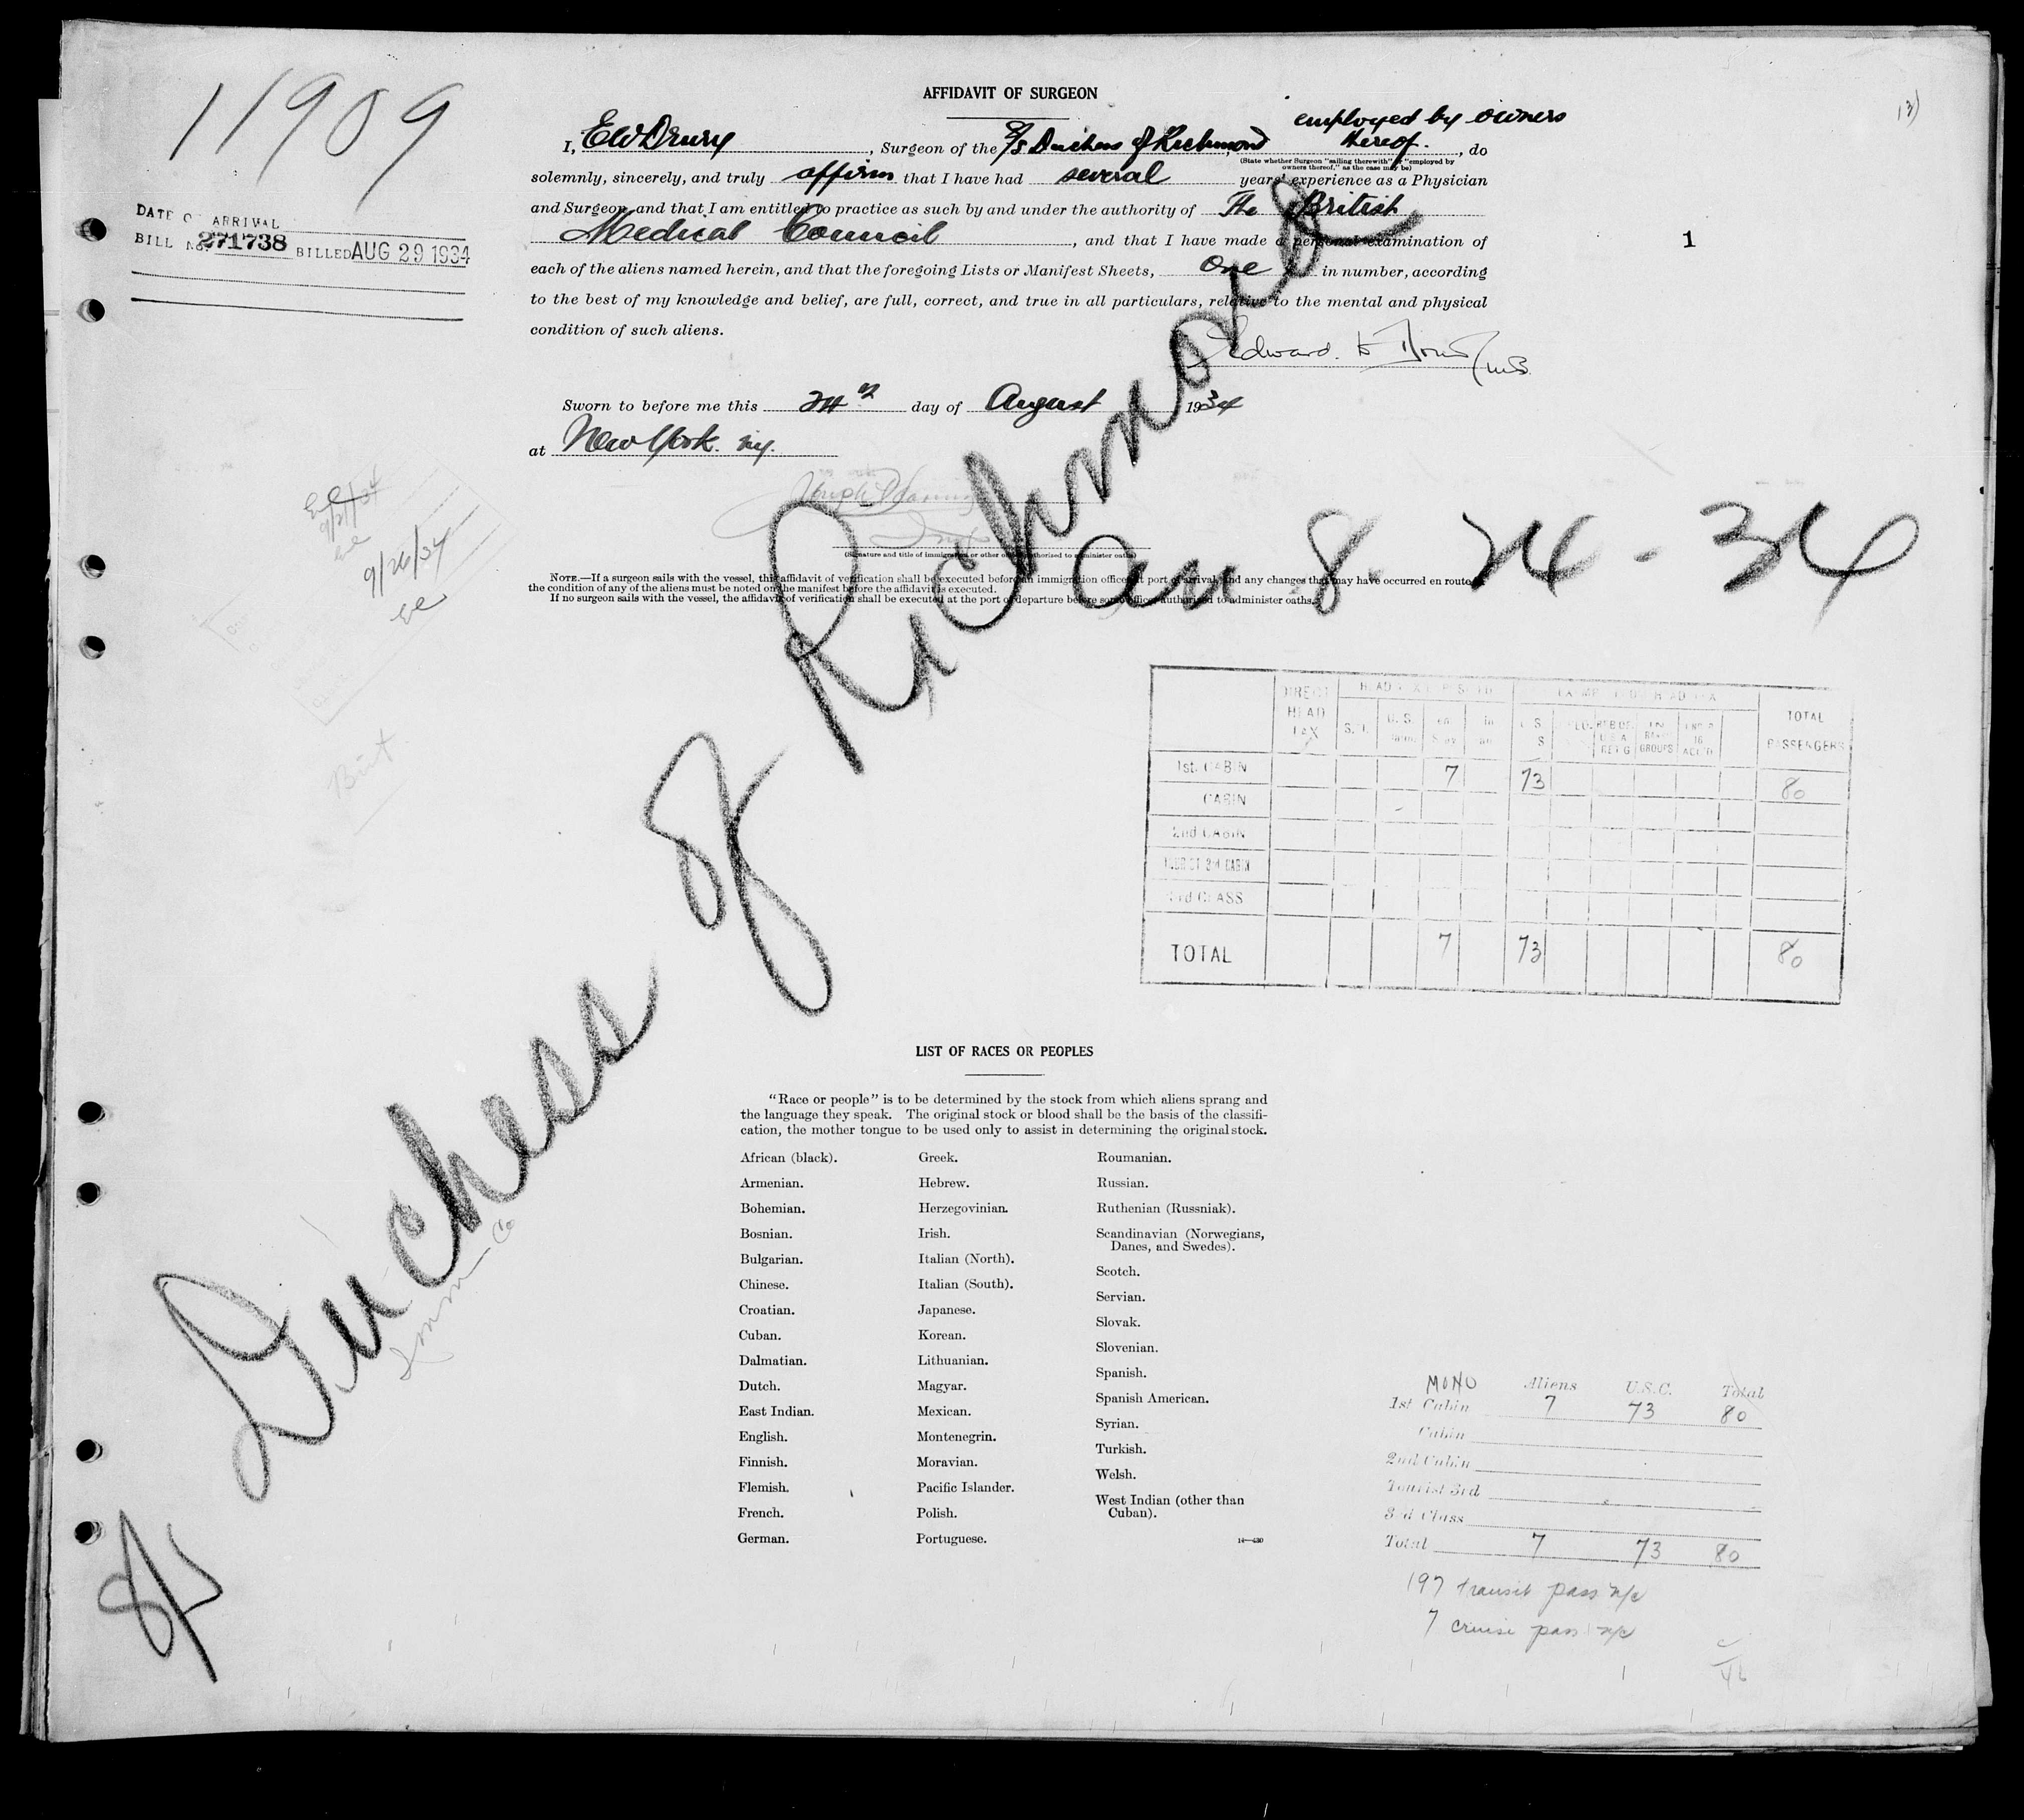 11909
(3)
AFFIDAVIT OF SURGEON
employed by owners
I, EW Drury, Surgeon of the S/S Duchess of Richmond thereof., do
(State whether Surgeon "sailing therewith" or "employed by
owners thereof," as the case may be)
solemnly, sincerely, and truly affirm that I have had several years' experience as a Physician
and Surgeon, and that I am entitled to practice as such by and under the authority of The British
Medical Council, and that I have made a personal examination of
each of the aliens named herein, and that the foregoing Lists or Manifest Sheets, One in number, according
to the best of my knowledge and belief, are full, correct, and true in all particulars, relative to the mental and physical
condition of such aliens.
DATE OF ARRIVAL
BILL No. 271738 BILLED AUG 29 1934
1
Edward W Drury MB.
Sworn to before me this 24th day of August 1934
at New York. NY.
(Signature and title of immigration or other officer authorized to administer oaths)
NOTE.—If a surgeon sails with the vessel, this affidavit of verification shall be executed before an immigration officer at port of arrival, and any changes that may have occurred en route
the condition of any of the aliens must be noted on the manifest before the affidavit is executed.
If no surgeon sails with the vessel, the affidavit of verification shall be executed at the port of departure before some officer authorized to administer oaths.
9/21/34
9/26/34
S/S Duchess of Richmond
Arr 8-24-34
DIRECT HEAD TAX
TOTAL PASSENGERS
1st. CABIN 7 73 80
CABIN
2nd CABIN
TOURIST 3rd CABIN
3rd CLASS
TOTAL 7 73 80
LIST OF RACES OR PEOPLES
"Race or people" is to be determined by the stock from which aliens sprang and
the language they speak. The original stock or blood shall be the basis of the classifi-
cation, the mother tongue to be used only to assist in determining the original stock.
African (black).
Armenian.
Bohemian.
Bosnian.
Bulgarian.
Chinese.
Croatian.
Cuban.
Dalmatian.
Dutch.
East Indian.
English.
Finnish.
Flemish.
French.
German.
Greek.
Hebrew.
Herzegovinian.
Irish.
Italian (North).
Italian (South).
Japanese.
Korean.
Lithuanian.
Magyar.
Mexican.
Montenegrin.
Moravian.
Pacific Islander.
Polish.
Portuguese.
Roumanian.
Russian.
Ruthenian (Russniak).
Scandinavian (Norwegians,
Danes, and Swedes).
Scotch.
Servian.
Slovak.
Slovenian.
Spanish.
Spanish American.
Syrian.
Turkish.
Welsh.
West Indian (other than
Cuban).
14—430
MONO Aliens U.S.C. Total
1st Cabin 7 73 80
Cabin
2nd Cabin
Tourist 3rd
3rd Class
Total 7 73 80
197 transit pass n/c
7 cruise pass n/c